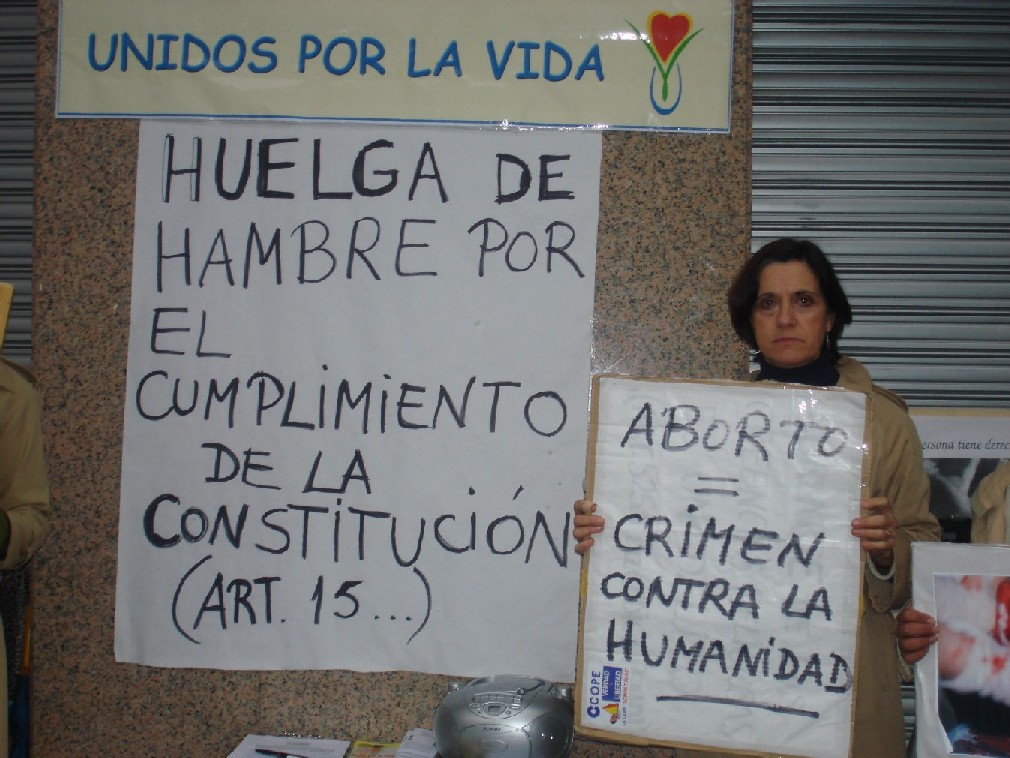 UNIDOS POR LA VIDA
HUELGA DE
HAMBRE POR
EL
CUMPLIMIENTO
DE LA
CONSTITUCIÓN
(ART. 15...)
ABORTO
=
CRIMEN
CONTRA LA
HUMANIDAD
COPE
VERDAD
LIBERTAD
ersona tiene derec